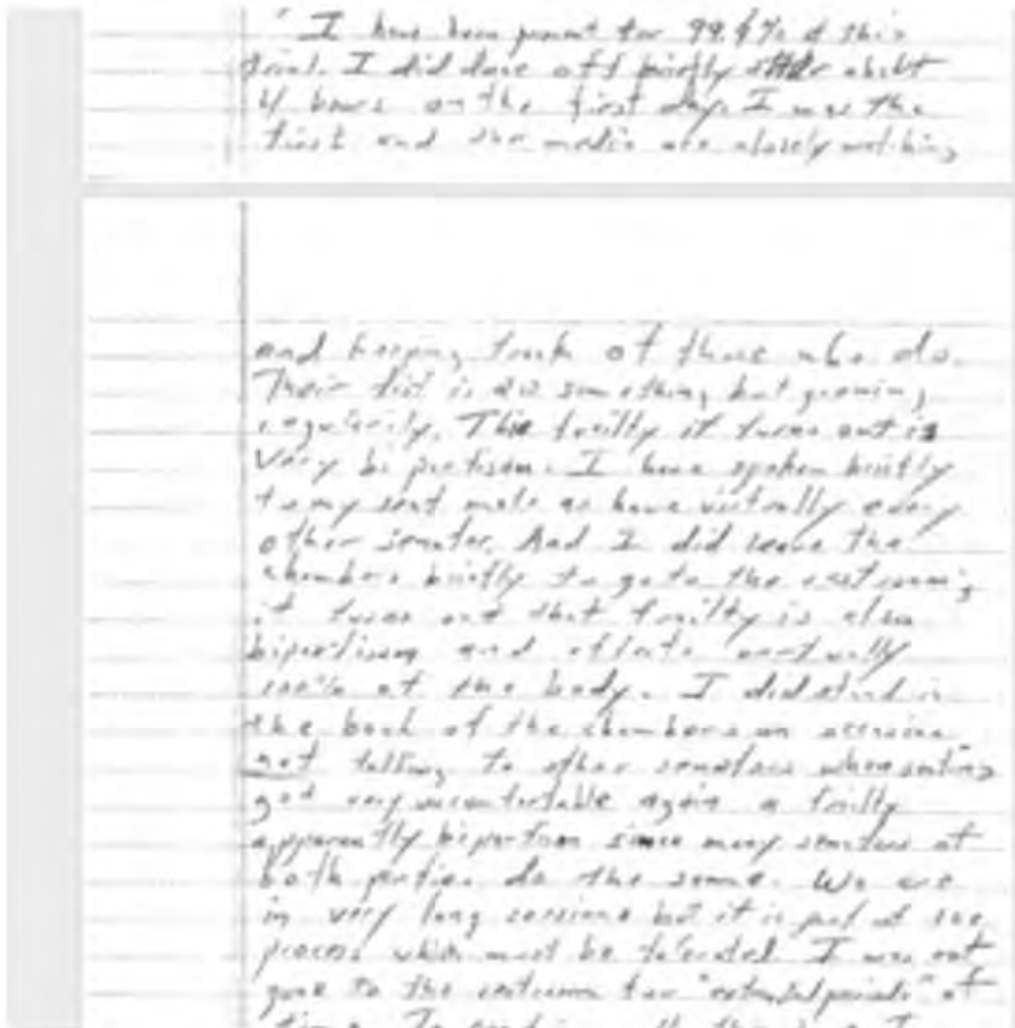 "I have been present for 99.4% of this
trial. I did doze off briefly after about
4 hours on the first day. I was the
first and the media are closely watching
and keeping track of those who do.
Their list is at something but growing
regularly. This frailty it turns out is
very bipartisan. I have spoken briefly
to my seat mate as have virtually every
other senator. And I did leave the
chambers briefly to go to the restroom;
it turns out that frailty is also
bipartisan and affects virtually
100% of the body. I did stand in
the back of the chambers on occasion
not talking to other senators when sitting
got very uncomfortable again a frailty
apparently bipartisan since many senators of
both parties do the same. We are
in very long sessions but it is part of the
process which must be tolerated. I was not
gone to the restroom for "extended periods" of
time.